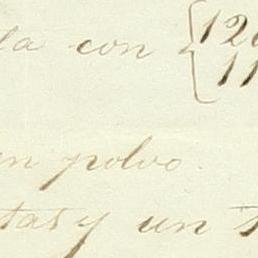 la con { 120
11
en polvo.
tas y un